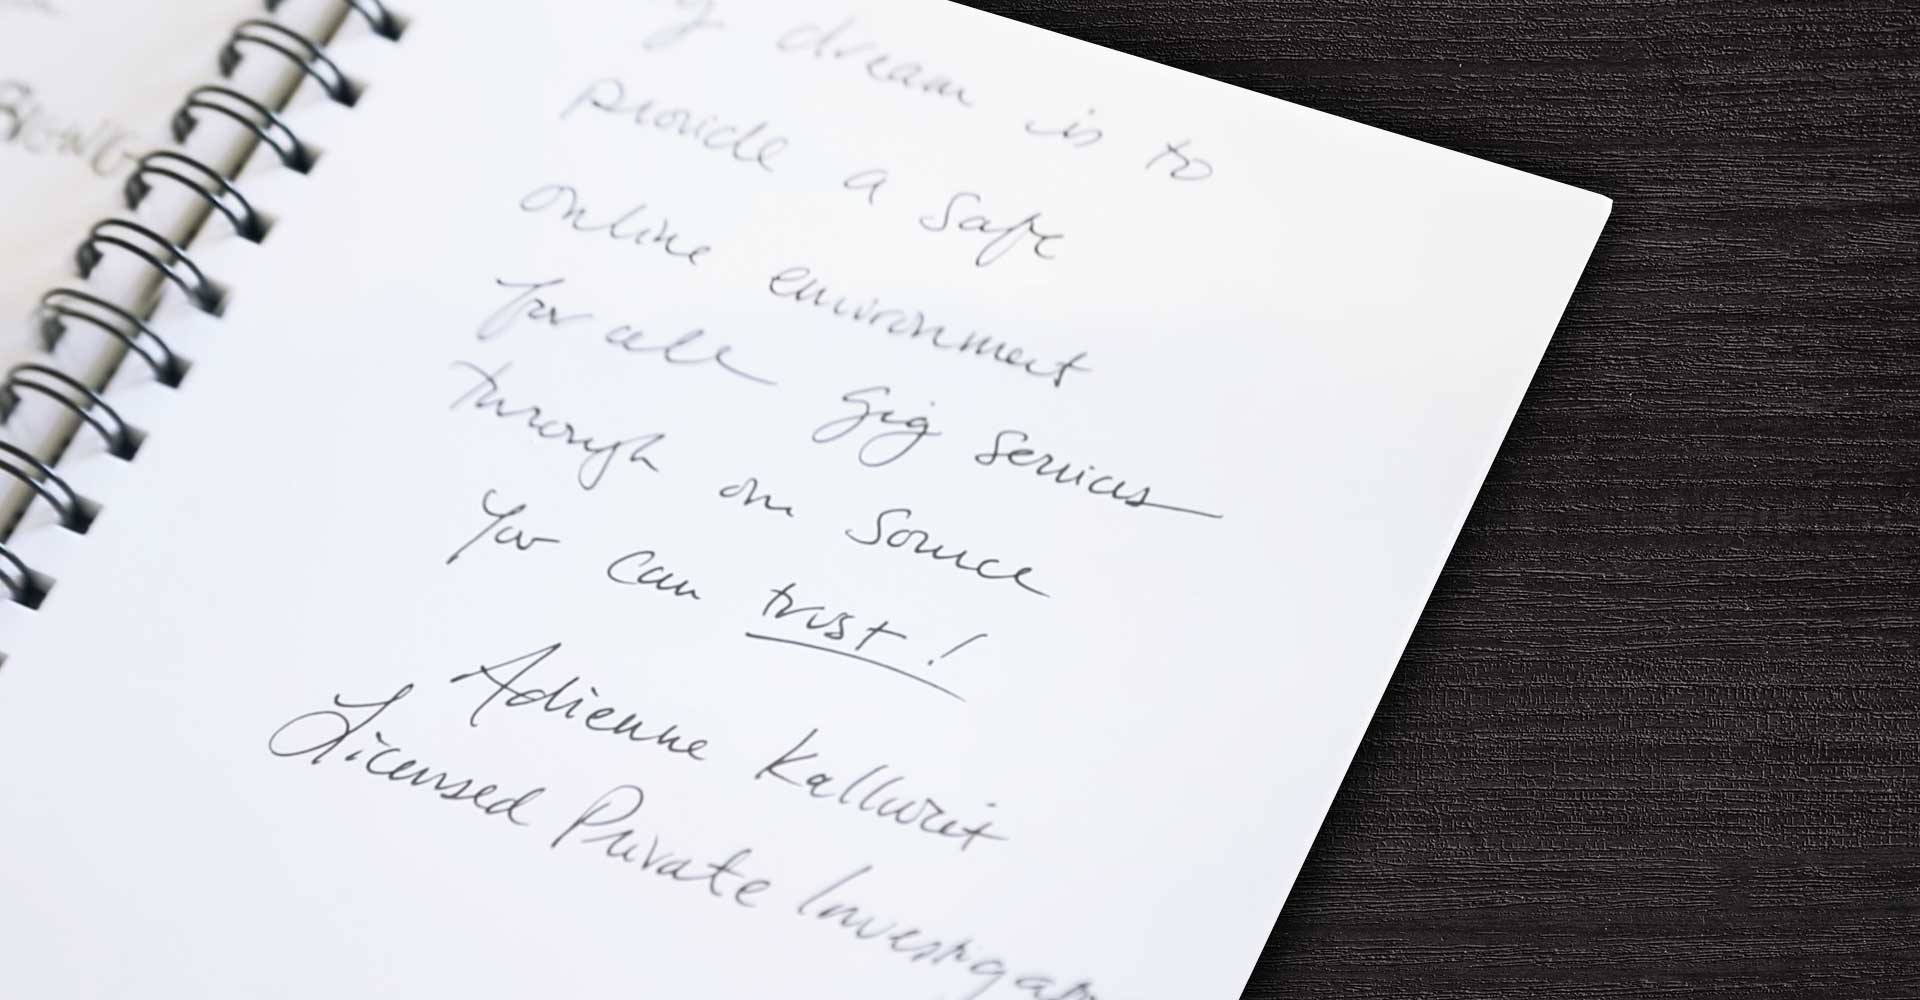 y dream is to
provide a safe
online environment
for all gig services
through one source
you can trust!
Adienne Kallweit
Licensed Private Investigat